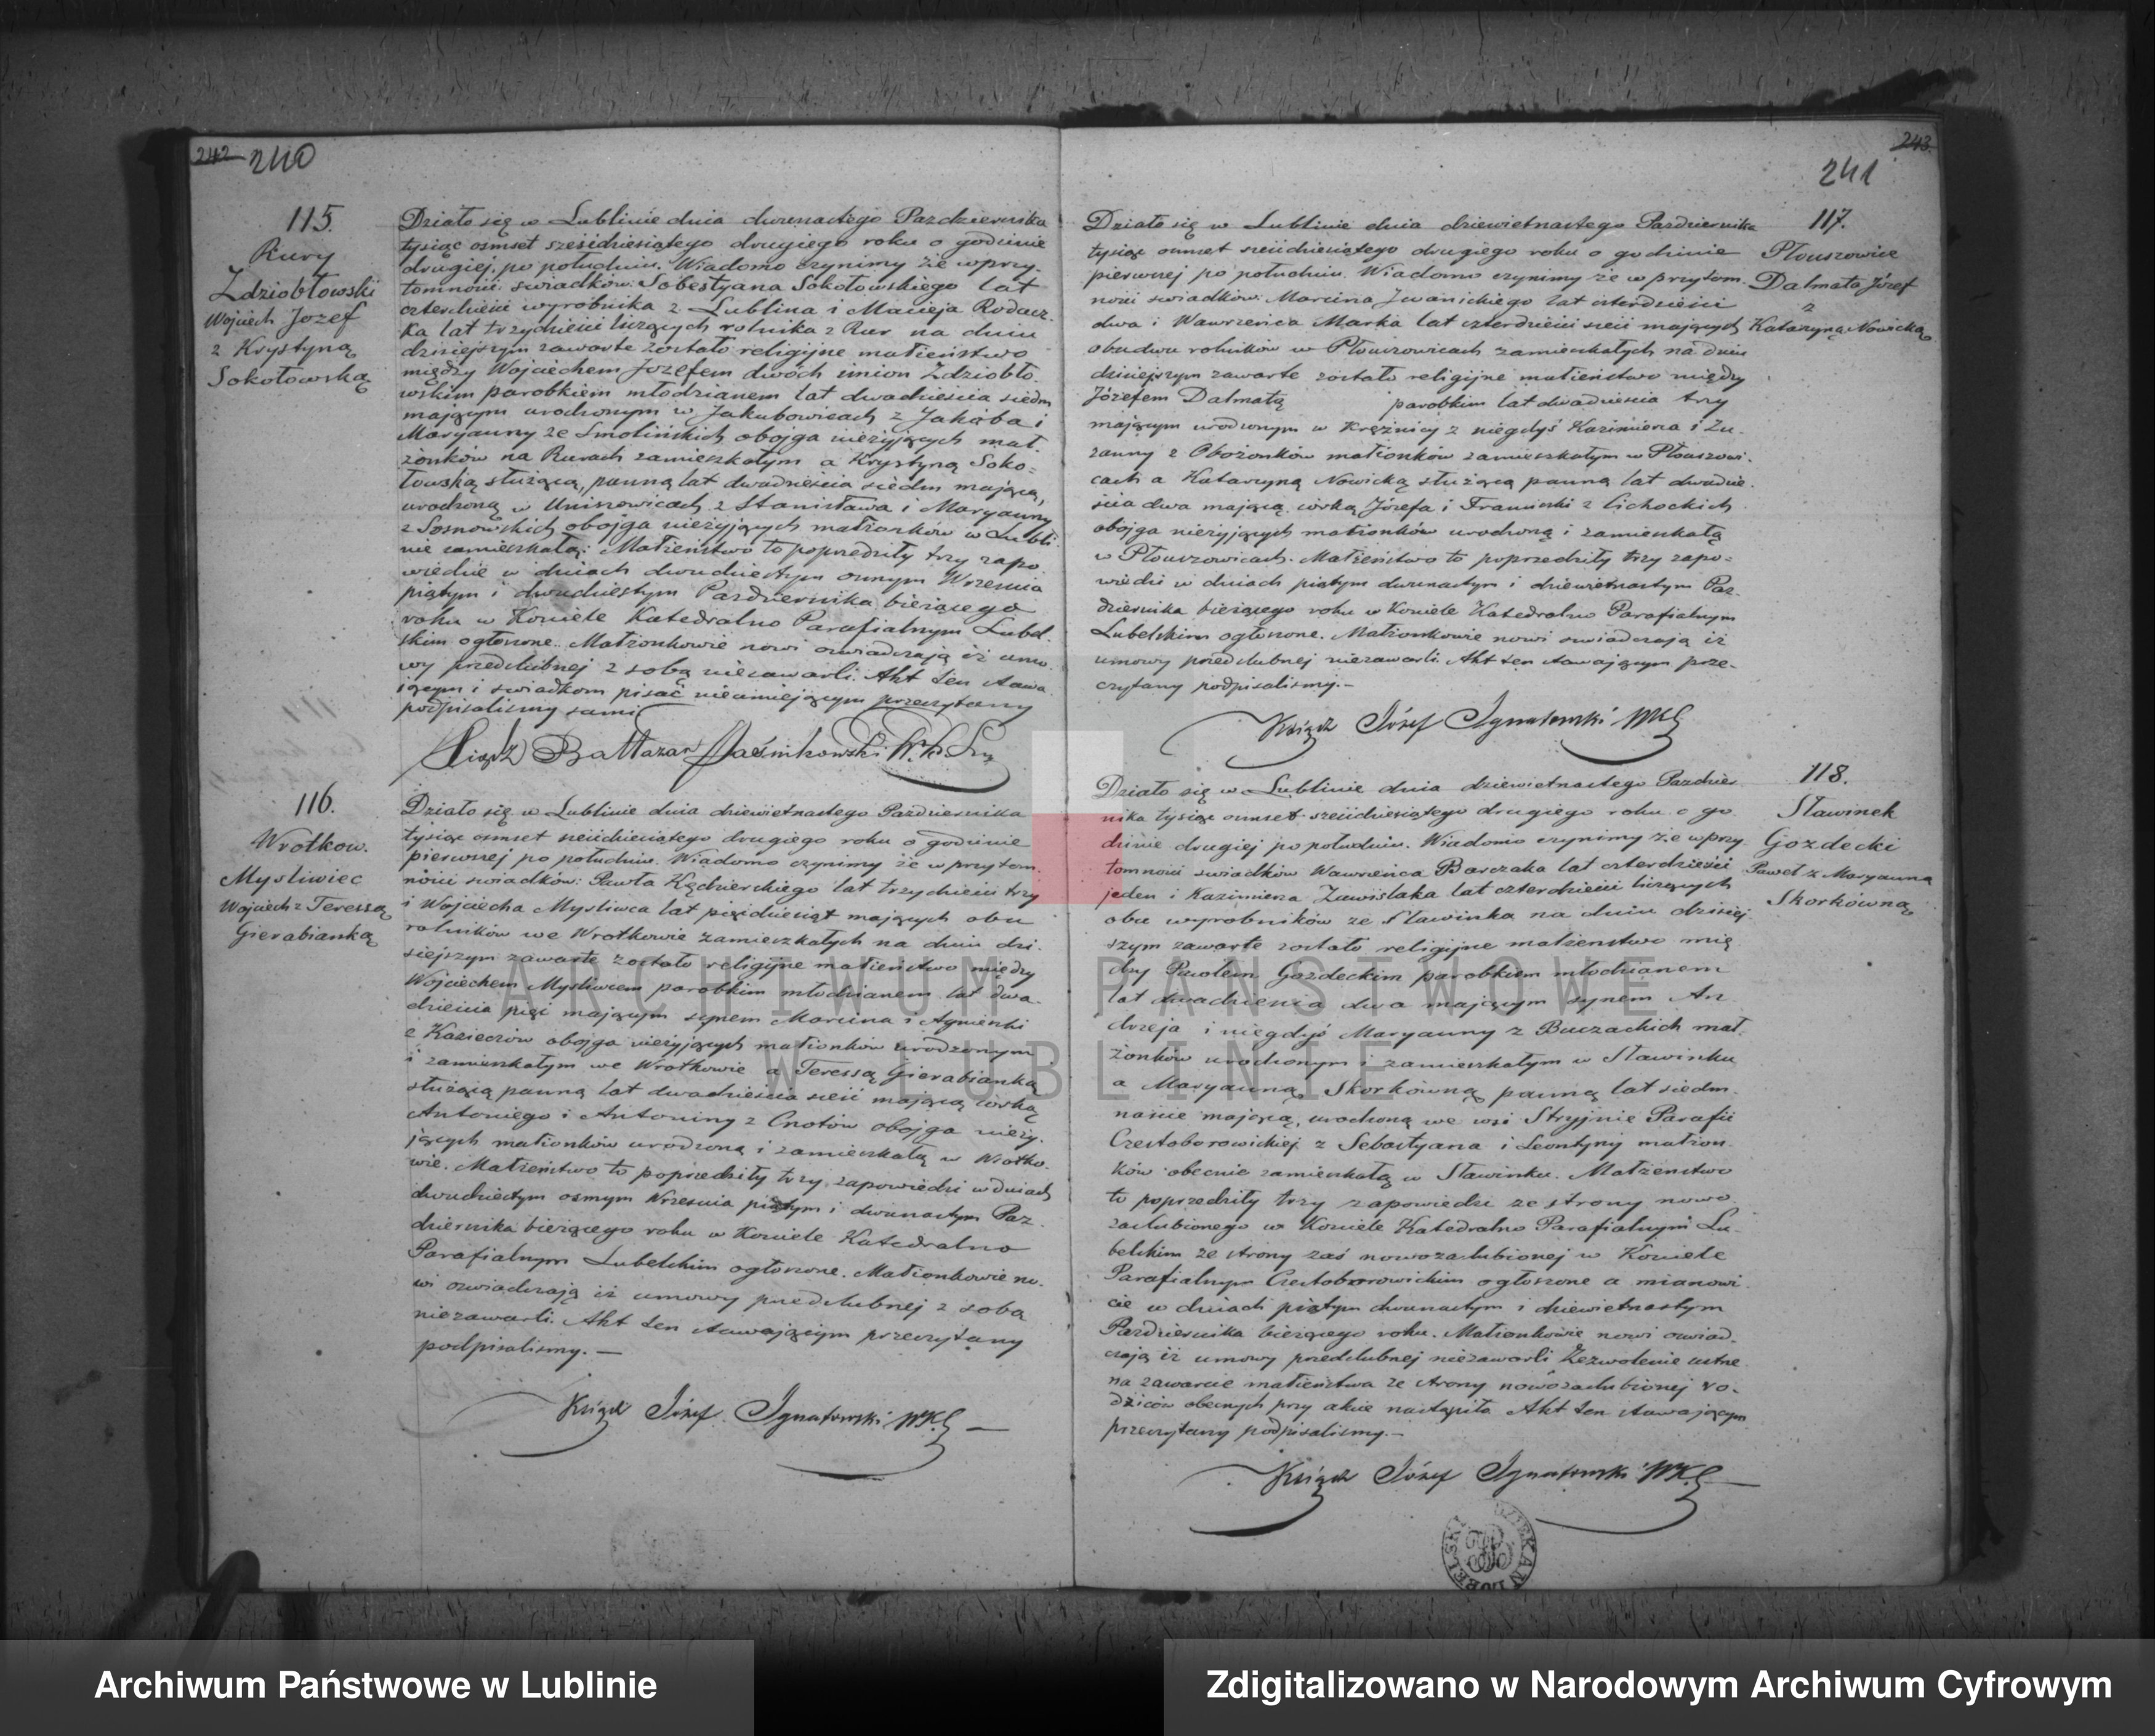 242 240
115.
Rury
Zdziobłowski
Wojciech Jozef
z Krystyną
Sokołowską
Działo się w Lublinie dnia dwunastego Pazdziernika
tysiąc osmset sześcdziesiątego drugiego roku o godzinie
drugiej po południu. Wiadomo czynimy że wprzy-
tomności swiadków: Sobestyana Sokołowskiego lat
czterdzieści wyrobnika z Lublina i Macieja Rodacz-
ka lat trzydzieści liczących rolnika z Rur na dniu
dzisiejszym zawarte zostało religijne małżeństwo
między Wojciechem Jozefem dwóch imion Zdziobło-
wskim parobkiem młodzianem lat dwadzieścia siedm
mającym urodzonym w Jakubowicach z Jakóba i
Maryanny ze Smolińskich obojga nieżyjących mał-
żonków na Rurach zamieszkałym a Krystyną Soko-
łowską służącą, panną lat dwadzieścia siedm mającą,
urodzoną w Uniszowicach z Stanisława i Maryanny
z Sosnowskich obojga nieżyjących małżonków w Lubli-
nie zamieszkałą: Małżeństwo to poprzedziły trzy zapo-
wiedzie w dniach dwudziestym osmym Września
piątym i dwudziestym Pazdziernika bieżącego
roku w Kościele Katedralno Parafialnym Lubel-
skim ogłoszone. Małżonkowie nowi oswiadczają iż umo-
wy przedślubnej z sobą niezawarli. Akt ten stawa-
jącym i swiadkom pisać nieumiejącym przeczytany
podpisaliśmy sami
Ksiądz Baltazar
116.
Wrotkow.
Mysliwiec
Wojciech z Teressą
Gierabianką
Działo się w Lublinie dnia dziewiętnastego Pazdziernika
tysiąc osmset sześcdziesiątego drugiego roku o godzinie
pierwszej po południu. Wiadomo czynimy że w przytom-
ności swiadków: Pawła Kędzierskiego lat trzydzieści trzy
i Wojciecha Mysliwca lat pięcdziesiąt mających obu
rolników we Wrotkowie zamieszkałych na dniu dzi-
siejszym zawarte zostało religijne małżeństwo między
Wojciechem Mysliwcem parobkim młodzianem lat dwa-
dzieścia pięć mającym synem Marcina i Agnieszki
z obojga nieżyjących małżonków urodzonym
i zamieszkałym we Wrotkowie a Teressą Gierabianką
służącą panną lat dwadzieścia sześć mającą córką
Antoniego i Antoniny z Cnotów obojga nieży-
jących małżonków urodzoną i zamieszkałą w Wrotko-
wie. Małżeństwo to poprzedziły trzy zapowiedzi w dniach
dwudziestym osmym Września piątym i dwunastym Paz-
dziernika bieżącego roku w Kościele Katedralno
Parafialnym Lubelskim ogłoszone. Małżonkowie no-
wi oswiadczają iż umowy przedślubnej z sobą
niezawarli. Akt ten stawającym przeczytany
podpisaliśmy. —
Ksiądz Józef Ignatowski WKL —
243
241
117.
Płouszowice
Dalmata Józef
z
Katarzyną Nowicką
Działo się w Lublinie dnia dziewiętnastego Pazdziernika
tysiąc osmset sześcdziesiątego drugiego roku o godzinie
pierwszej po południu. Wiadomo czynimy że w przytom-
ności swiadków: Marcina Iwanickiego lat czterdzieści
dwa i Wawrzeńca Marka lat czterdzieści sześć mających
obudwu rolników w Płouszowicach zamieszkałych na dniu
dzisiejszym zawarte zostało religijne małżeństwo między
Józefem Dalmatą parobkim lat dwadzieścia trzy
mającym urodzonym w Krężnicy z niegdyś Kazimierza i Zu-
zanny z Obożonków małżonków zamieszkałym w Płouszowi-
cach a Katarzyną Nowicką służącą panną lat dwadzie-
ścia dwa mającą córką Józefa i Franciszki z Cichockich
obojga nieżyjących małżonków urodzoną i zamieszkałą
w Płouszowicach. Małżeństwo to poprzedziły trzy zapo-
wiedzi w dniach piątym dwunastym i dziewiętnastym Paz-
dziernika bieżącego roku w Kościele Katedralno Parafialnym
Lubelskim ogłoszone. Małżonkowie nowi oswiadczają iż
umowy przedślubnej niezawarli. Akt ten stawającym prze-
czytany podpisaliśmy. —
Ksiądz Józef Ignatowski WKL
118.
Sławinek
Gozdecki
Paweł z Maryanną
Skorkówną
Działo się w Lublinie dnia dziewiętnastego Pazdzier-
nika tysiąc osmset sześcdziesiątego drugiego roku o go-
dzinie drugiej po południu. Wiadomo czynimy że wprzy-
tomności swiadków Wawrzeńca Barczaka lat czterdzieści
jeden i Kazimierza Zawislaka lat czterdzieści liczących
obu wyrobników ze Sławinka na dniu dzisiej-
szym zawarte zostało religijne małżeństwo mię-
dzy Pawłem Gozdeckim parobkiem młodzianem
lat dwadzieścia dwa mającym synem An-
drzeja i niegdyś Maryanny z Buczackich mał-
żonków urodzonym i zamieszkałym w Sławinku
a Maryanną Skorkówną panną lat siedm-
naście mającą, urodzoną we wsi Stryjnie Parafii
Częstoborowickiej z Sebastyana i Leontyny małżon-
ków obecnie zamieszkałą w Sławinku. Małżeństwo
to poprzedziły trzy zapowiedzi ze strony nowo-
zaślubionego w Kościele Katedralno Parafialnym Lu-
belskim ze strony zaś nowozaślubionej w Kościele
Parafialnym Częstoborowickim ogłoszone a mianowi-
cie w dniach piątym dwunastym i dziewiętnastym
Pazdziernika bieżącego roku. Małżonkowie nowi oswiad-
czają iż umowy przedślubnej niezawarli Zezwolenie ustne
na zawarcie małżeństwa ze strony nowozaślubionej ro-
dziców obecnych przy akcie nastąpiło Akt ten stawającym
przeczytany podpisaliśmy. —
Ksiądz Józef Ignatowski WKL —
ARCHIWUM PAŃSTWOWE
W LUBLINIE
Archiwum Państwowe w Lublinie
Zdigitalizowano w Narodowym Archiwum Cyfrowym